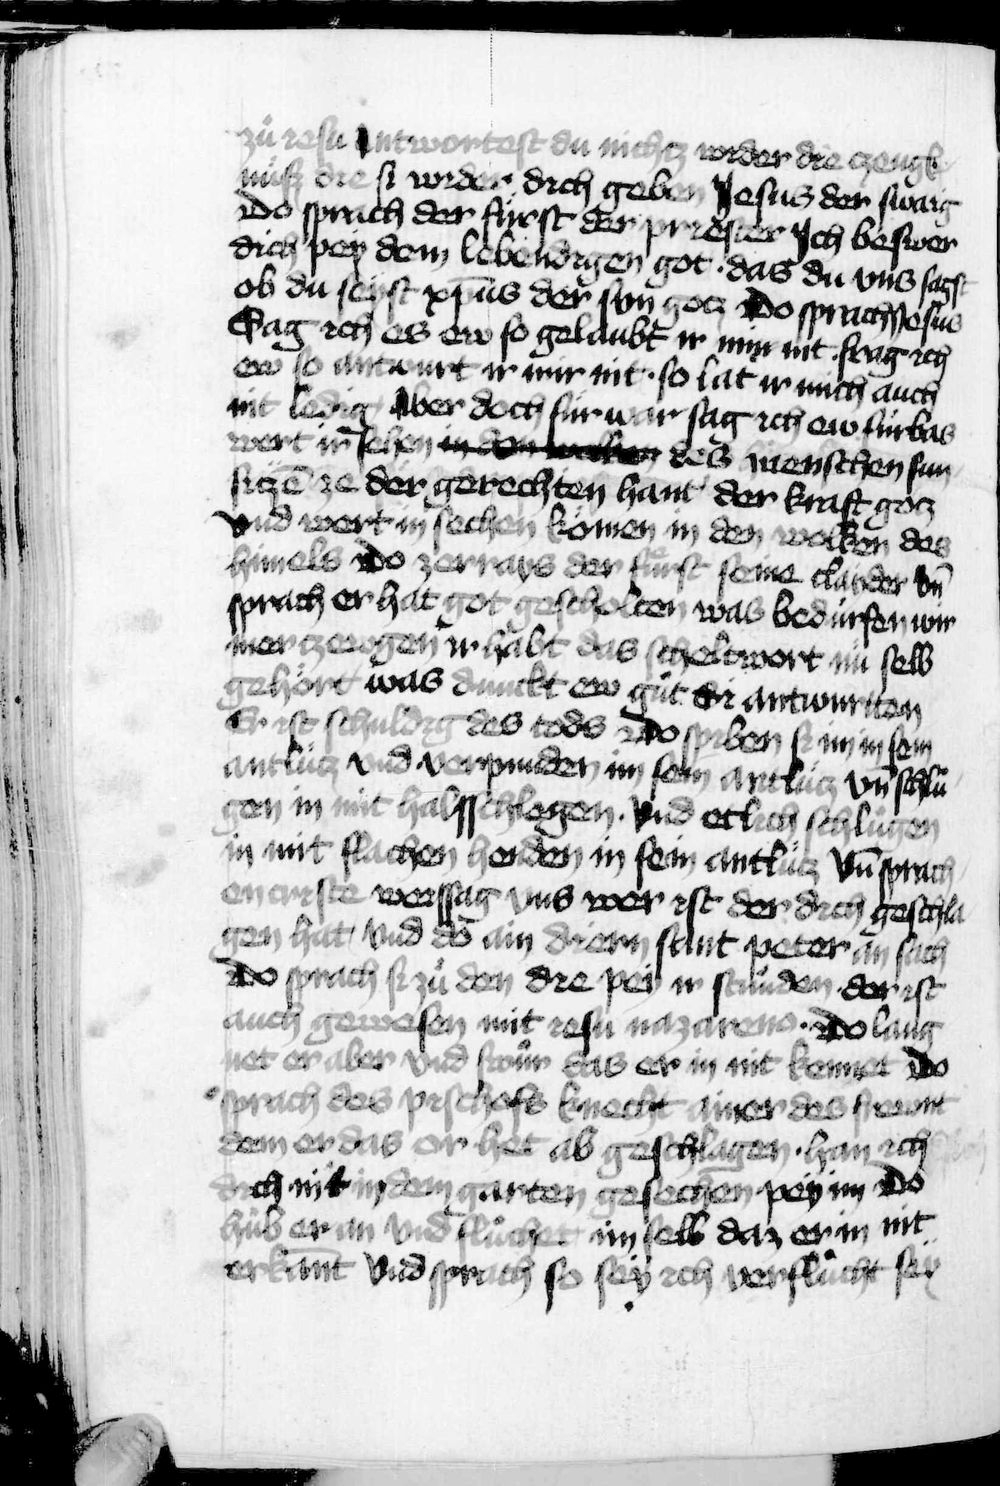 zů iesu Antwortest du nichtz wider die czeugk
nüsz die si wider dich geben Jesus der swaig
Do sprach der fürst der priester Ich beswer
dich pey dem lebendigen got · das du vns sagst
ob du seyst xp̄us der sun gotz Do sprach Jesus
Sag ich es ew so gelaubt ir mir nit · frag ich
ew so antwurt ir mir nit · so lat ir mich auch
nit ledig Aber doch für war sag ich ew fürbas
wert ir sehen in den wolken des menschen sun
siczē ze der gerechten hant der kraft gotz
Vnd wert in sechen komen in den wolken des
himels Do zerrays der fürst seine claider vn̄
sprach er hat got gescholten was bedürfen wir
mer czewgen ir habt das scheltwort nu selb
gehört was dunckt ew gůt Si antwurtten
Er ist schuldig des tods Do spiben si im in sein
antlücz vnd verpunden im sein antlücz vn̄ schlů
gen in mit halsschlegen · Vnd etlich schlůgen
in mit flachen henden in sein antlücz Vn̄ sprach
en criste weissag vns wer ist der dich geschla
gen hat Vnd do ain diern sant peter an sach
Do sprach si zů den die pey ir stůnden · der ist
auch gewesen mit iesu nazareno · Do laug
net er aber vnd swůr das er in nit kennet Do
sprach des pischofs knecht ainer des frewnt
dem er das or het ab geschlagen · han ich
dich nit in dem garten gesechen pey im Do
hůb er an vnd flůchet im selb daz er in nit
erkannt Vnd sprach so sey ich verflůcht sey